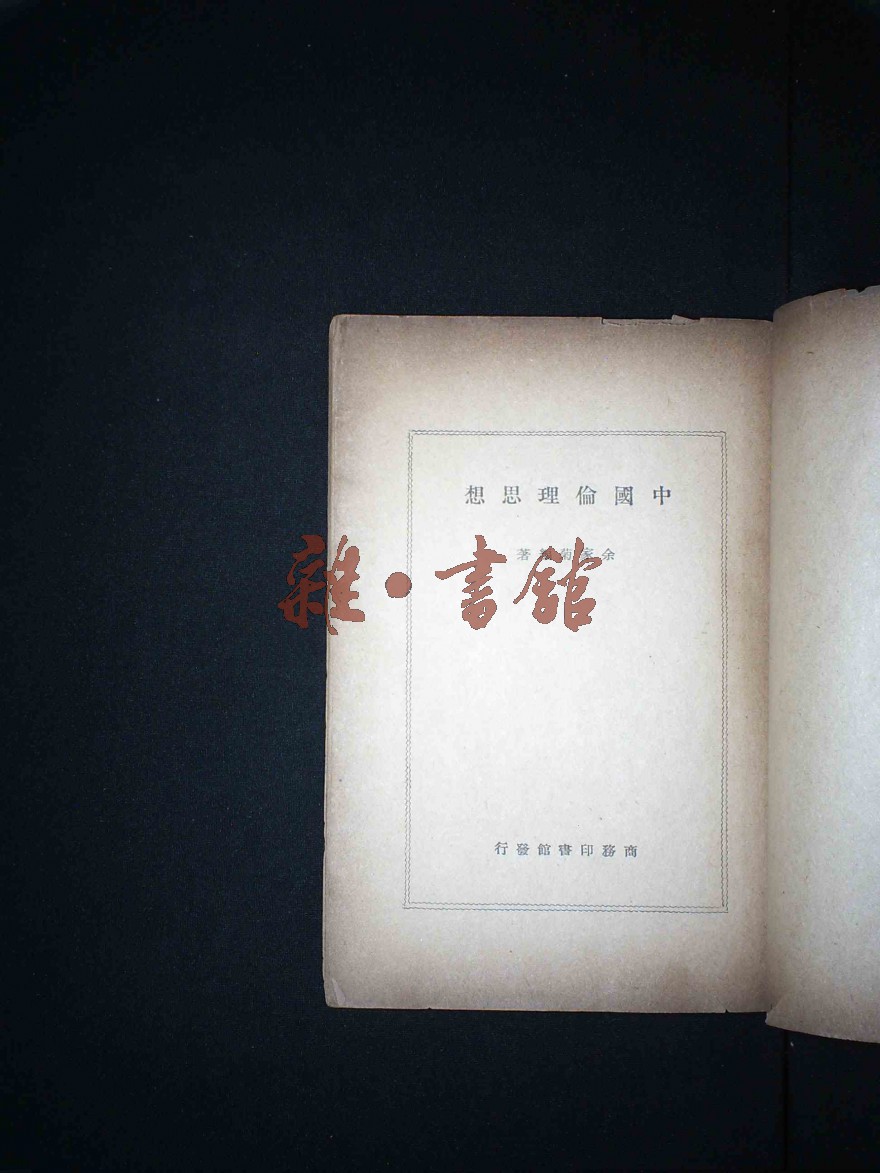 中國倫理思想
余家菊編著
雜·書館
商務印書館發行